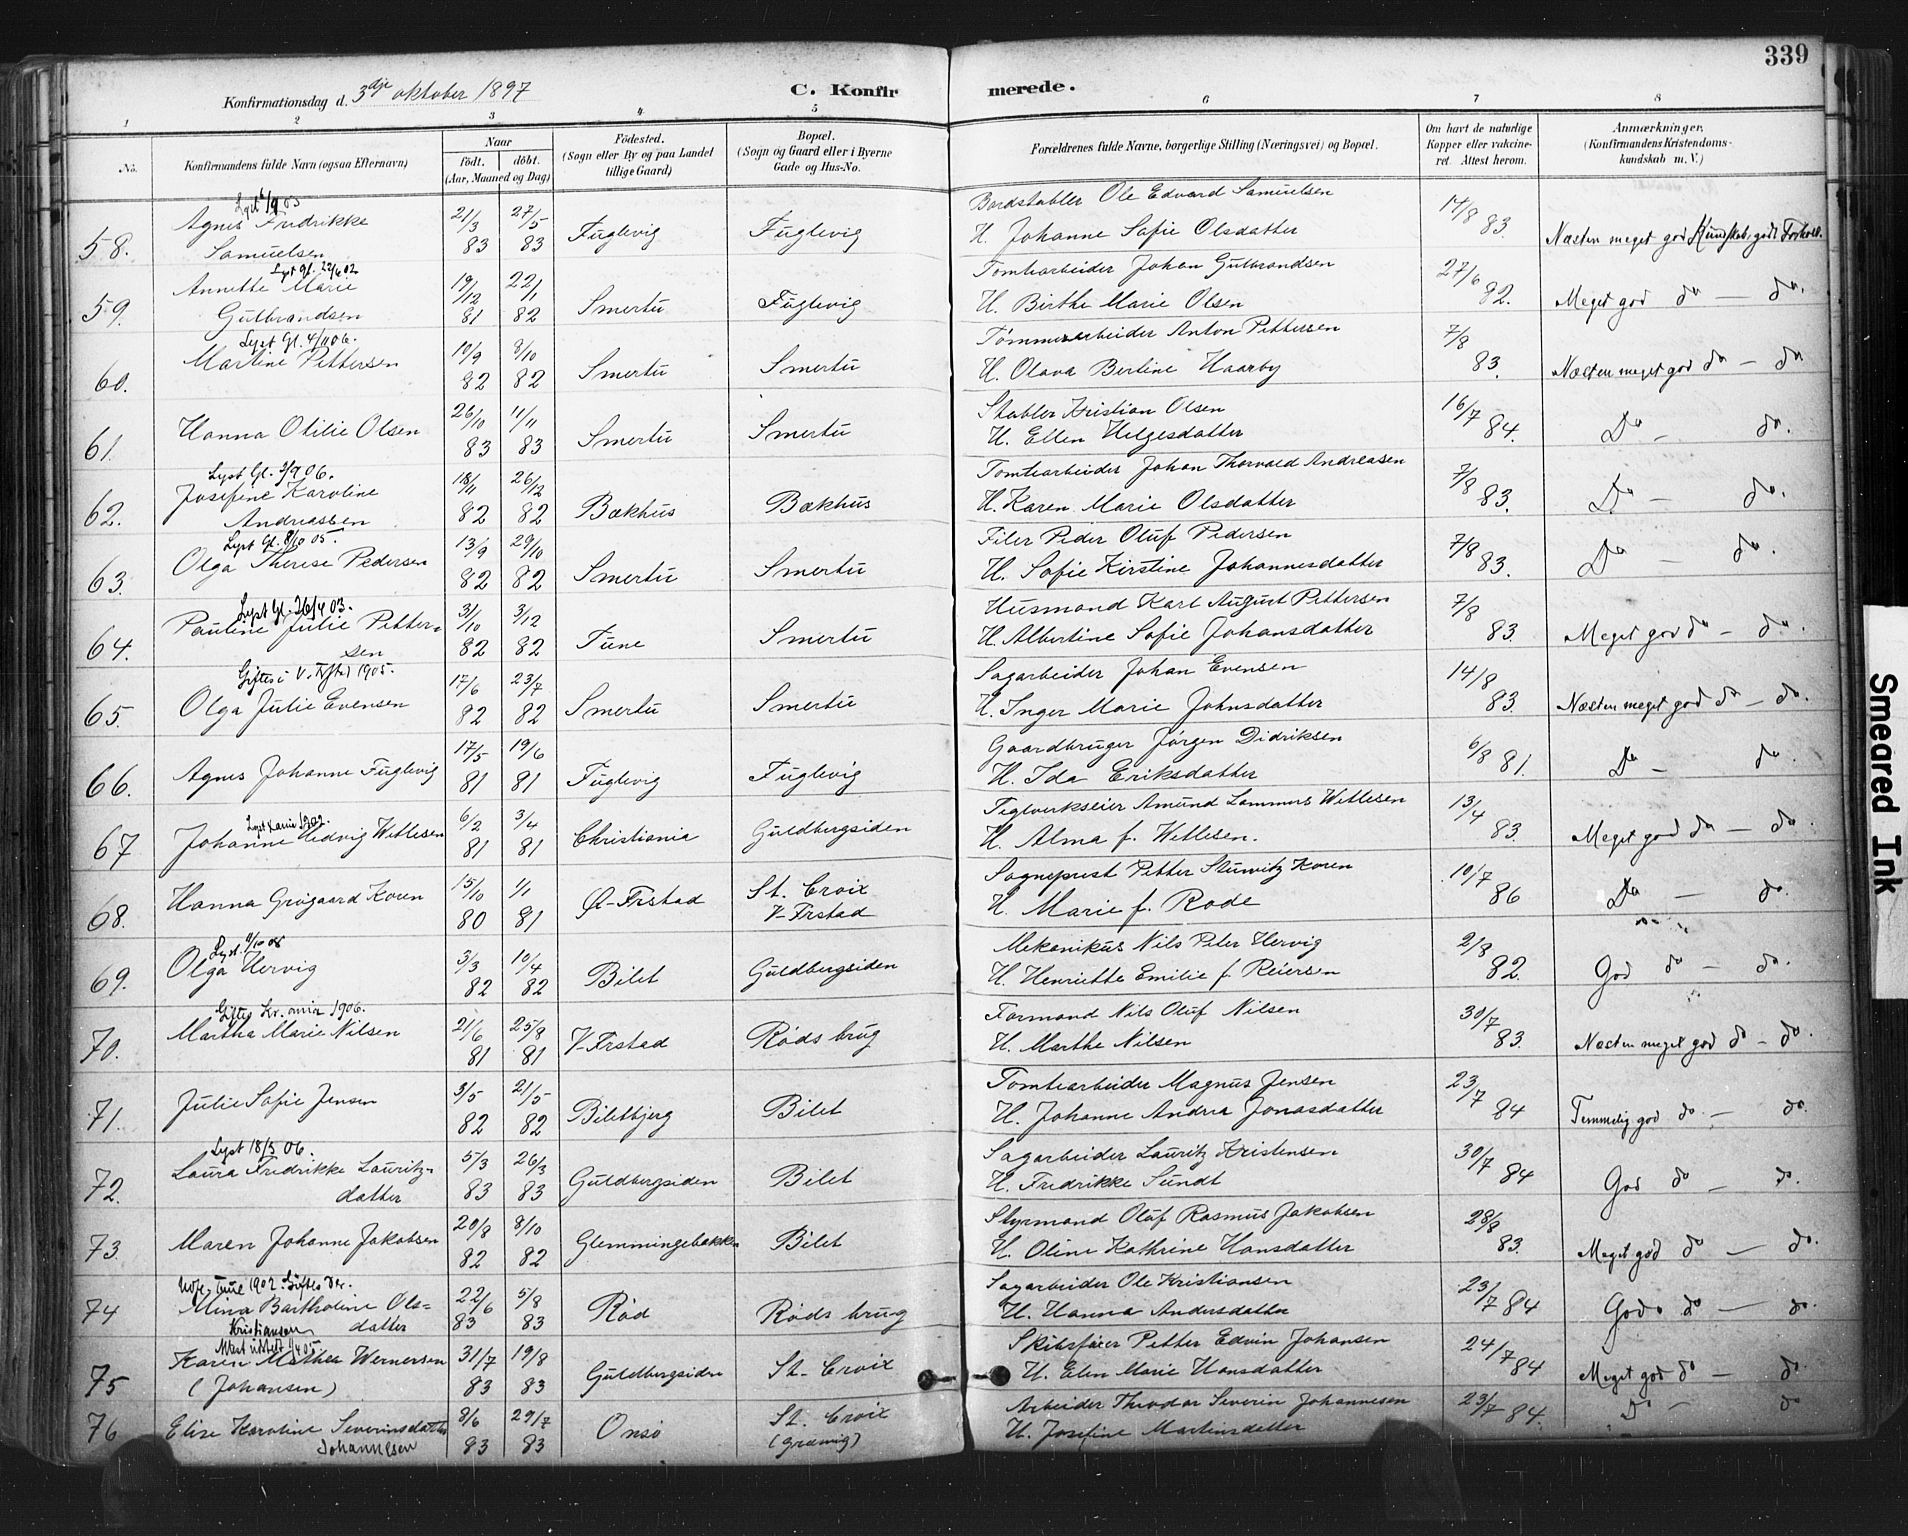 339
Konfirmationsdag d. 3dje oktober 1897 C. Konfirmerede.
1 2 3 4 5 6 7 8
No. Konfirmandens fulde Navn (ogsaa Efternavn) Naar födt. döbt. (Aar, Maaned og Dag) Födested. (Sogn eller By og paa Landet tillige Gaard) Bopæl. (Sogn og Gaard eller i Byerne Gade og Hus-No. Forældrenes fulde Navne, borgerlige Stilling (Næringsvei) og Bopæl. Om havt de naturlige Kopper eller vakcineret. Attest herom. Anmærkninger. (Konfirmandens Kristendomskundskab m. V.)
Lyst 6/9 03
58. Agnes Fredrikke Samuelsen 21/3 83 27/5 83 Fuglevig Fuglevig Bordstabler Ole Edvard Samuelsen H. Johanne Sofie Olsdatter 14/8 83. Næsten meget god Kundskab, godt Forhold.
Lyst Gl. 22/6 02
59. Annette Marie Gulbrandsen 19/12 81 22/1 82 Smertu Fuglevig Tomtearbeider Johan Gulbrandsen H. Birthe Marie Olsen 27/6 82. Meget god do — do.
Lyst Gl. 4/11 06.
60. Martine Pettersen 10/9 82 8/10 82 Smertu Smertu Tømmerarbeider Anton Pettersen H. Olava Bertine Haarby 7/8 83. Næsten meget god do — do
61. Hanna Otilie Olsen 26/10 83 11/11 83 Smertu Smertu Stabler Kristian Olsen H. Ellen Helgesdatter 16/7 84. Do — do.
Lyst Gl. 2/9 06.
62. Josefine Karoline Andreassen 18/11 82 26/12 82 Bækhus Bækhus Tomtearbeider Johan Thorvald Andreasen H. Karen Marie Olsdatter 7/8 83. Do — do.
Lyst Gl. 8/10 05.
63. Olga Therese Pedersen 13/9 82 29/10 82 Smertu Smertu Filer Peder Oluf Pedersen H. Sofie Kirstine Johannesdatter 7/8 83. Do — do.
Lyst Gl. 26/4 03.
64. Pauline Julie Pettersen 3/10 82 3/12 82 Tune Smertu Husmand Karl August Pettersen H. Albertine Sofie Johansdatter 7/8 83 Meget god do — do.
Giftes i V. Frstad 1905.
65. Olga Julie Evensen 17/6 82 23/7 82 Smertu Smertu Sagarbeider Johan Evensen H. Inger Marie Johnsdatter 14/8 83. Næsten meget god do — do.
66. Agnes Johanne Fuglevig 17/5 81 19/6 81 Fuglevig Fuglevig Gaardbruger Jørgen Didriksen H. Ida Eriksdatter 6/8 81. Do — do.
Lyst Kania 1902.
67 Johanne Hedvig Wetlesen 6/2 81 3/4 81 Christiania Guldbergsiden Teglverkseier Amund Lammers Wetlesen H. Alma f. Wetlesen. 13/4 83. Meget god do — do.
68. Hanna Grøgaard Koren 15/10 80 1/1 81 Ø-Frstad St. Croix V-Frstad Sogneprest Petter Stuwitz Koren H. Marie f. Rode 10/7 86 Do — do.
Lyst. 11/10 08
69. Olga Hervig 3/3 82 10/4 82 Bilet Guldbergsiden Mekanikus Nils Peter Hervig H. Henriette Emilie f. Reiersen 2/8 82. God do — do.
Giftes Kr.ania 1906.
70. Martha Marie Nilsen 21/6 81 25/8 81 V-Frstad Røds brug Formand Nils Oluf Nilsen H. Marthe Nilsen 30/7 83. Næsten meget god do — do.
71. Julie Sofie Jensen 3/5 82 21/5 82 Biletbjerg Bilet Tomtearbeider Magnus Jensen H. Johanne Andrea Jonasdatter 23/7 84 Temmelig god do — do.
Lyst 18/3 06.
72. Laura Fredrikke Lauritzdatter 5/3 83 26/3 83 Guldbergsiden Bilet Sagarbeider Lauritz Kristensen H. Fredrikke Sundt 30/7 84 God do — do.
73. Maren Johanne Jakobsen 20/8 82 8/10 82 Glemmingebakken Bilet Styrmand Oluf Rasmus Jakobsen H. Oline Kathrine Hansdatter 28/8 83. Meget god do — do.
Tune 1902. Giftes der.
74 Mina Bartholine Olsdatter Kristiansen 22/6 83 5/8 83 Rød Røds brug Sagarbeider Ole Kristiansen H. Hanna Andersdatter 23/7 84 God do — do.
75 Karen Mathea Wernersen (Johansen) 31/7 83 19/8 83 Guldbergsiden St. Croix Skibsfører Petter Edvin Johansen H. Elen Marie Hansdatter 24/7 84 Meget god do — do.
76 Elise Karoline Severinsdatter Johannesen 8/6 83 29/7 83 Onsø St. Croix Arbeider Theodor Severin Johannesen H. Josefine Martinsdatter 23/7 84. Do — do
Smeared Ink